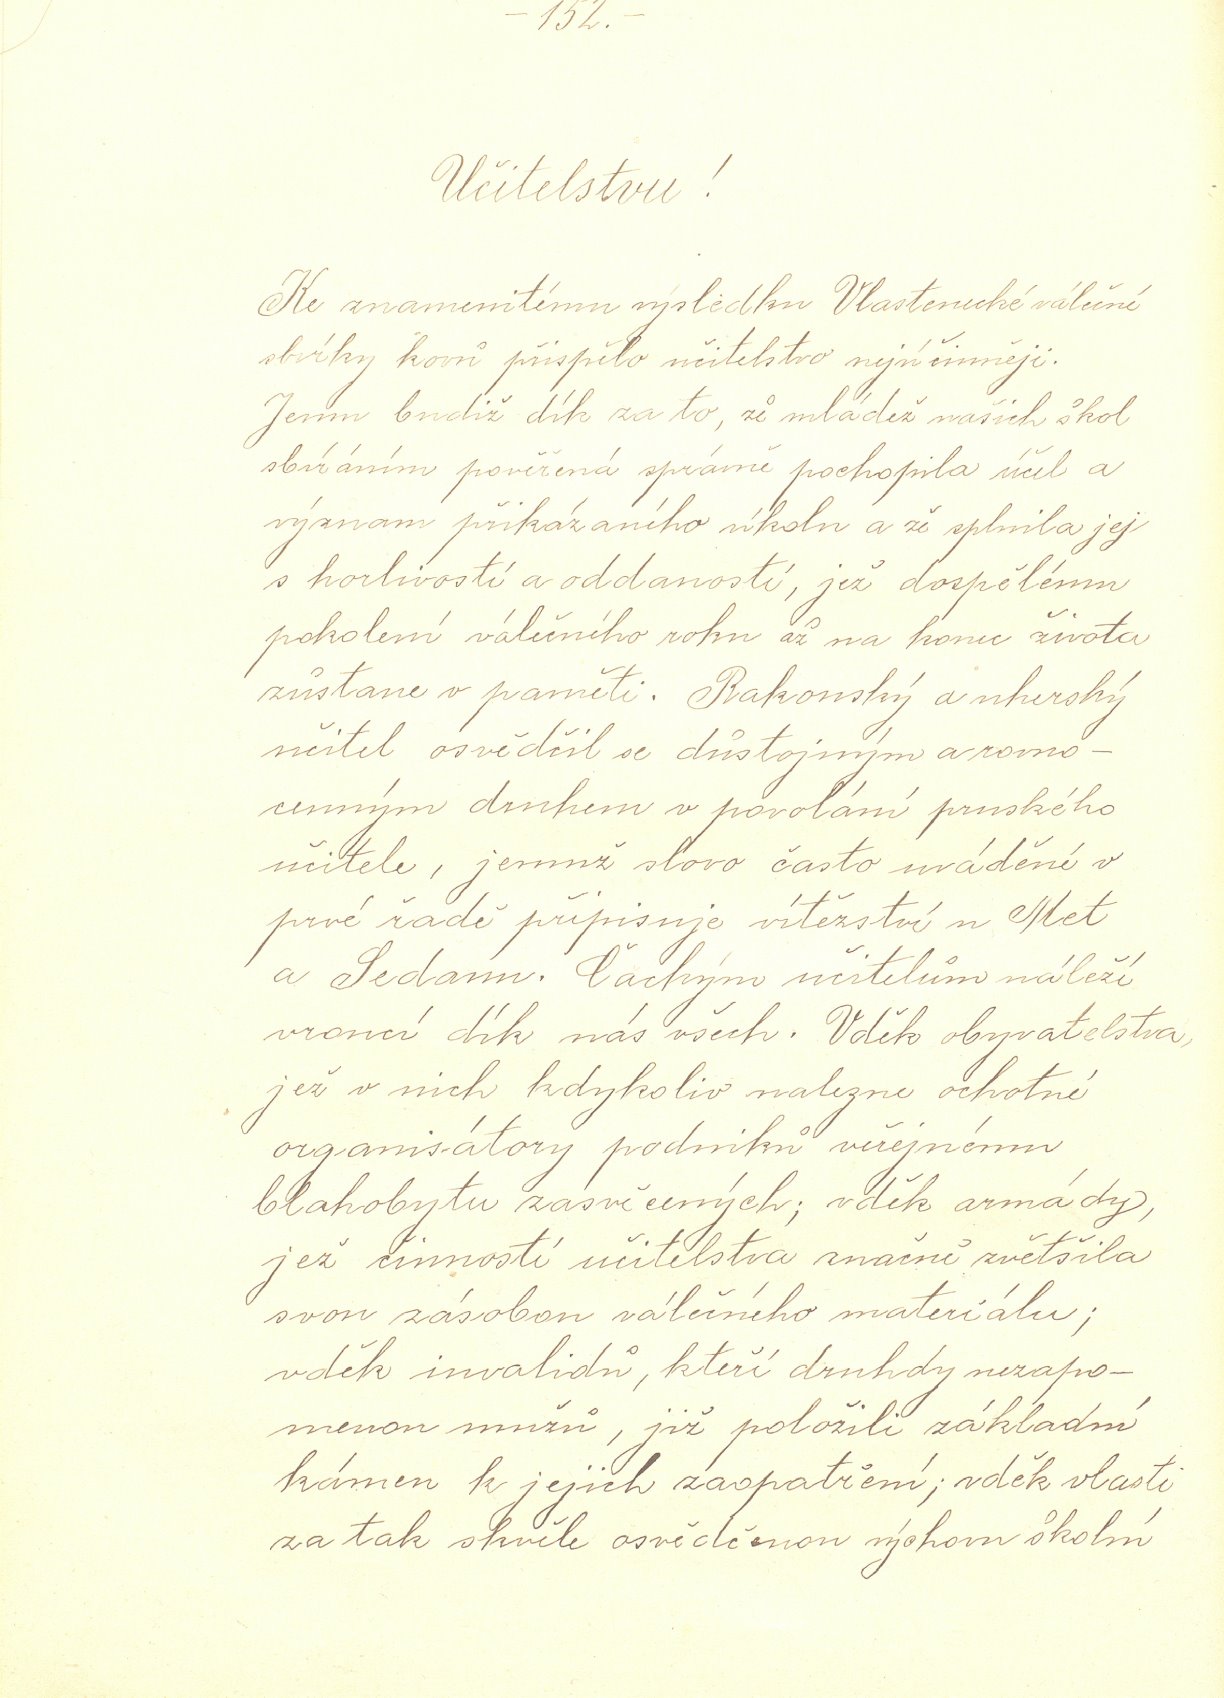 – 152. –
Učitelstvu!
Ke znamenitému výsledku Vlastenecké válečné
sbírky kovů přispělo učitelstvo nejúčinněji.
Jemu budiž dík za to, že mládež našich škol
sbíráním pověřená správně pochopila účel a
význam přikázaného úkolu a že splnila jej
s horlivostí a oddaností, jež dospělému
pokolení válečného roku až na konec života
zůstane v paměti. Rakouský a uherský
učitel osvědčil se důstojným a rovno-
cenným druhem v povolání pruského
učitele, jemuž slovo často uváděné v
prvé řadě připisuje vítězství u Met
a Sedanu. Čackým učitelům náleží
vroucí dík nás všech. Vděk obyvatelstva,
jež v nich kdykoliv nalezne ochotné
organisátory podniků veřejnému
blahobytu zasvěcených; vděk armády,
jež činností učitelstva značně zvětšila
svou zásobou válečného materiálu;
vděk invalidů, kteří druhdy nezapo-
menou mužů, již položili základní
kámen k jejich zaopatření; vděk vlasti
za tak skvěle osvědčenou výchovu školní